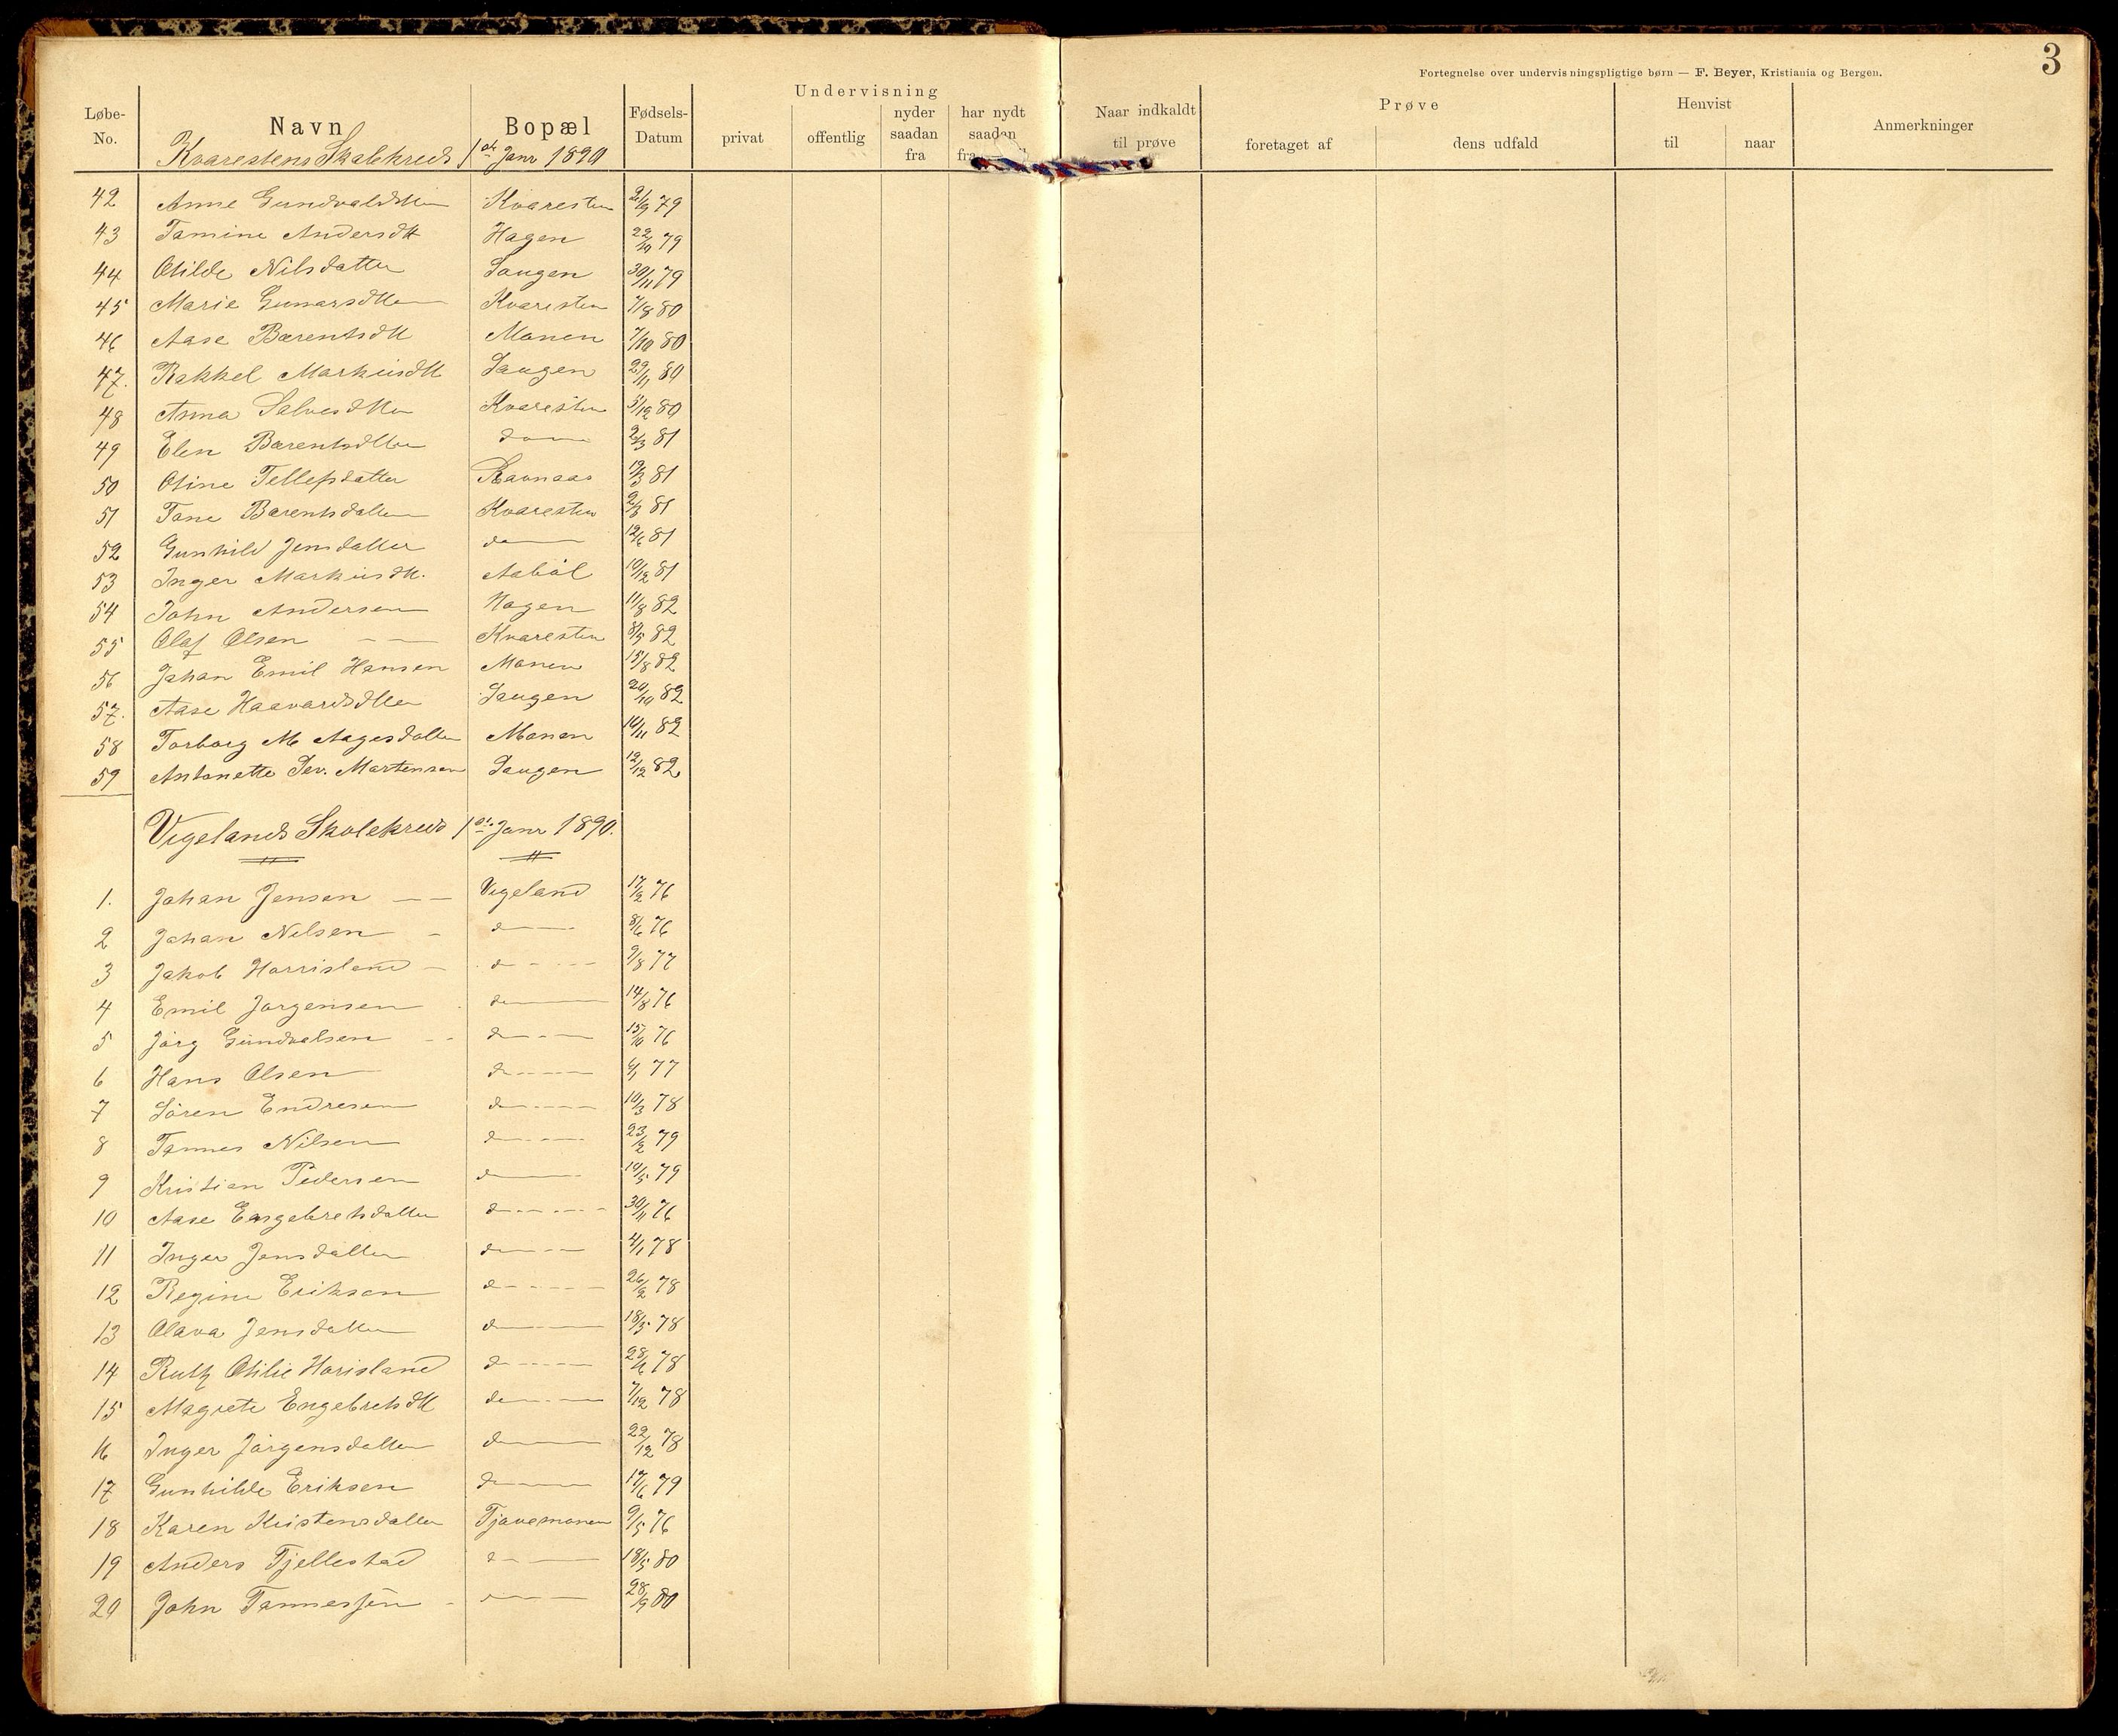 3
Fortegnelse over undervisningspligtige børn — F. Beyer, Kristiania og Bergen.
Løbe-No. Navn Bopæl Fødsels-Datum Undervisning privat offentlig nyder saadan fra har nydt saadan fra Naar indkaldt til prøve Prøve foretaget af dens udfald Henvist til naar Anmerkninger
Kvarestens Skolekreds 1ste Janr 1890
42 Anne Gundvaldsdtter Kvaresten 2/9 79
43 Tamine Andersdtt Hagen 22/10 79
44 Otilde Nilsdatter Saugen 30/11 79
45 Marie Gunarsdtter Kvaresten 7/8 80
46 Aase Barentsdtt Monen 7/10 80
47. Rakkel Markusdtt Saugen 29/11 80
48 Anna Salvesdtter Kvaresten 5/12 80
49 Elen Barentsdtter do 2/3 81
50 Otine Tellefsdatter Ravnaas 19/3 81
51 Tone Barentsdatter Kvaresten 81
52 Gunhild Jensdatter do 12/6 81
53 Inger Markusdtt. Aabøl 10/12 81
54 John Andersen Hagen 11/8 82
55 Olaf Olsen — — Kvaresten 8/5 82
56 Johan Emil Hansen Monen 15/8 82
57. Aase Haavardsdtter Saugen 20/10 82
58 Torborg M Aagesdatter Monen 10/11 82
59 Antonette Sev. Martensen Saugen 12/12 82
Vigelands Skolekreds 1ste Janr 1890.
1. Johan Jensen — — Vigeland 17/2 76
2 Johan Nilsen - do 8/6 76
3 Jakob Harrisland - do 9/8 77
4 Emil Jørgensen do 14/8 76
5 Jørg Gundvalsen - - do 15/10 76
6 Hans Olsen do 6/1 77
7 Søren Endresen do 10/3 78
8 Tannes Nilsen do 23/2 79
9 Kristian Pedersen do 10/5 79
10 Aase Engebretsdatter do 30/11 76
11 Inger Jensdatter do 4/1 78
12 Regine Eriksen do 26/2 78
13 Olava Jensdatter do 18/5 78
14 Ruth Otilie Harisland do 28/6 78
15 Magrete Engebretsdtt do 7/12 78
16 Inger Jørgensdatter do 22/12 78
17 Gunhilde Eriksen do 17/6 79
18 Karen Kristensdatter Tjavemonen 9/5 76
19 Anders Tjellestad do 18/5 80
20 John Tannessen - do 28/9 80